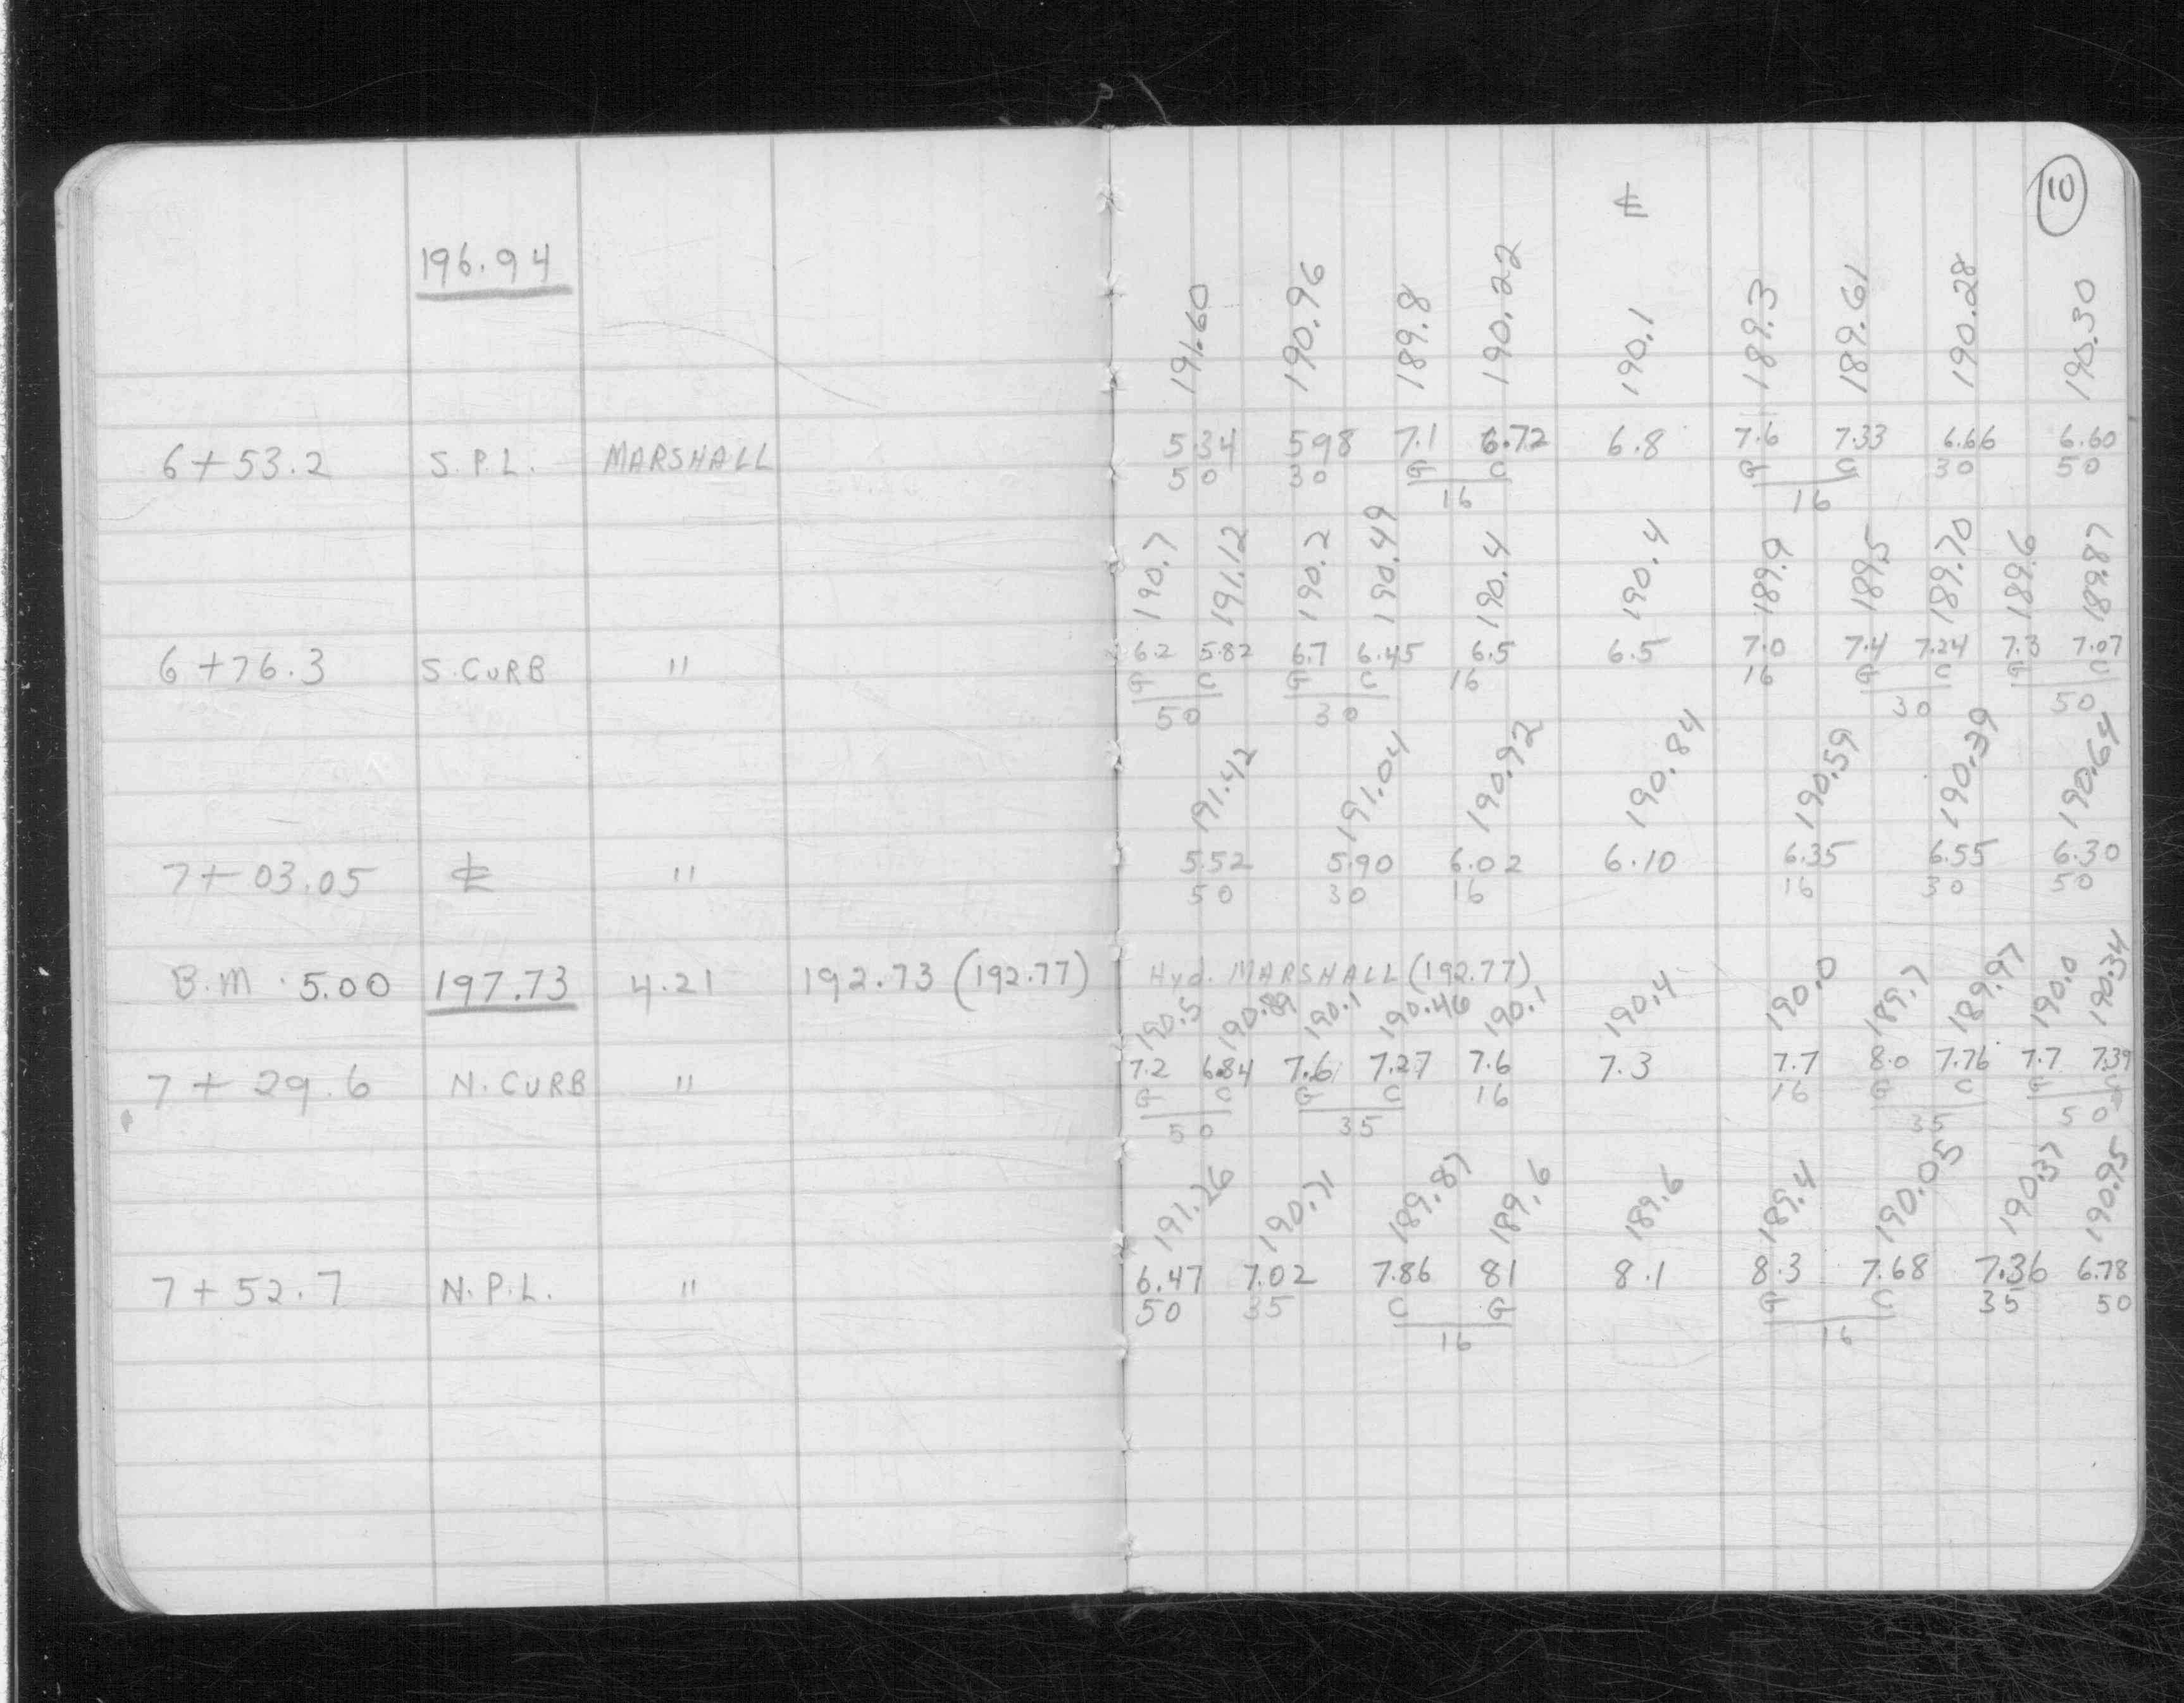 10
℄
196.94
191.60 190.96 189.8 190.22 190.1 189.3 189.61 190.28 190.30
6+53.2 S.P.L. MARSHALL 5.34 5.98 7.1 6.72 6.8 7.6 7.33 6.66 6.60
50 30 G C G C 30 50
16 16
190.7 191.12 190.2 190.49 190.4 190.4 189.9 189.5 189.70 189.6 189.87
6+76.3 S.CURB " 6.2 5.82 6.7 6.45 6.5 6.5 7.0 7.4 7.24 7.3 7.07
G C G C 16 16 G C G C
50 30 30 50
191.42 191.04 190.92 190.84 190.59 190.39 190.64
7+03.05 ℄ " 5.52 5.90 6.02 6.10 6.35 6.55 6.30
50 30 16 16 30 50
B.M. 5.00 197.73 4.21 192.73 (192.77) Hyd. MARSHALL (192.77)
190.5 190.89 190.1 190.46 190.1 190.4 190.0 189.7 189.97 190.0 190.34
7+29.6 N.CURB " 7.2 6.84 7.6 7.27 7.6 7.3 7.7 8.0 7.76 7.7 7.39
G C G C 16 16 G C G C
50 35 35 50
191.26 190.71 189.87 189.6 189.6 189.4 190.05 190.37 190.95
7+52.7 N.P.L. " 6.47 7.02 7.86 81 8.1 8.3 7.68 7.36 6.78
50 35 C G G C 35 50
16 16